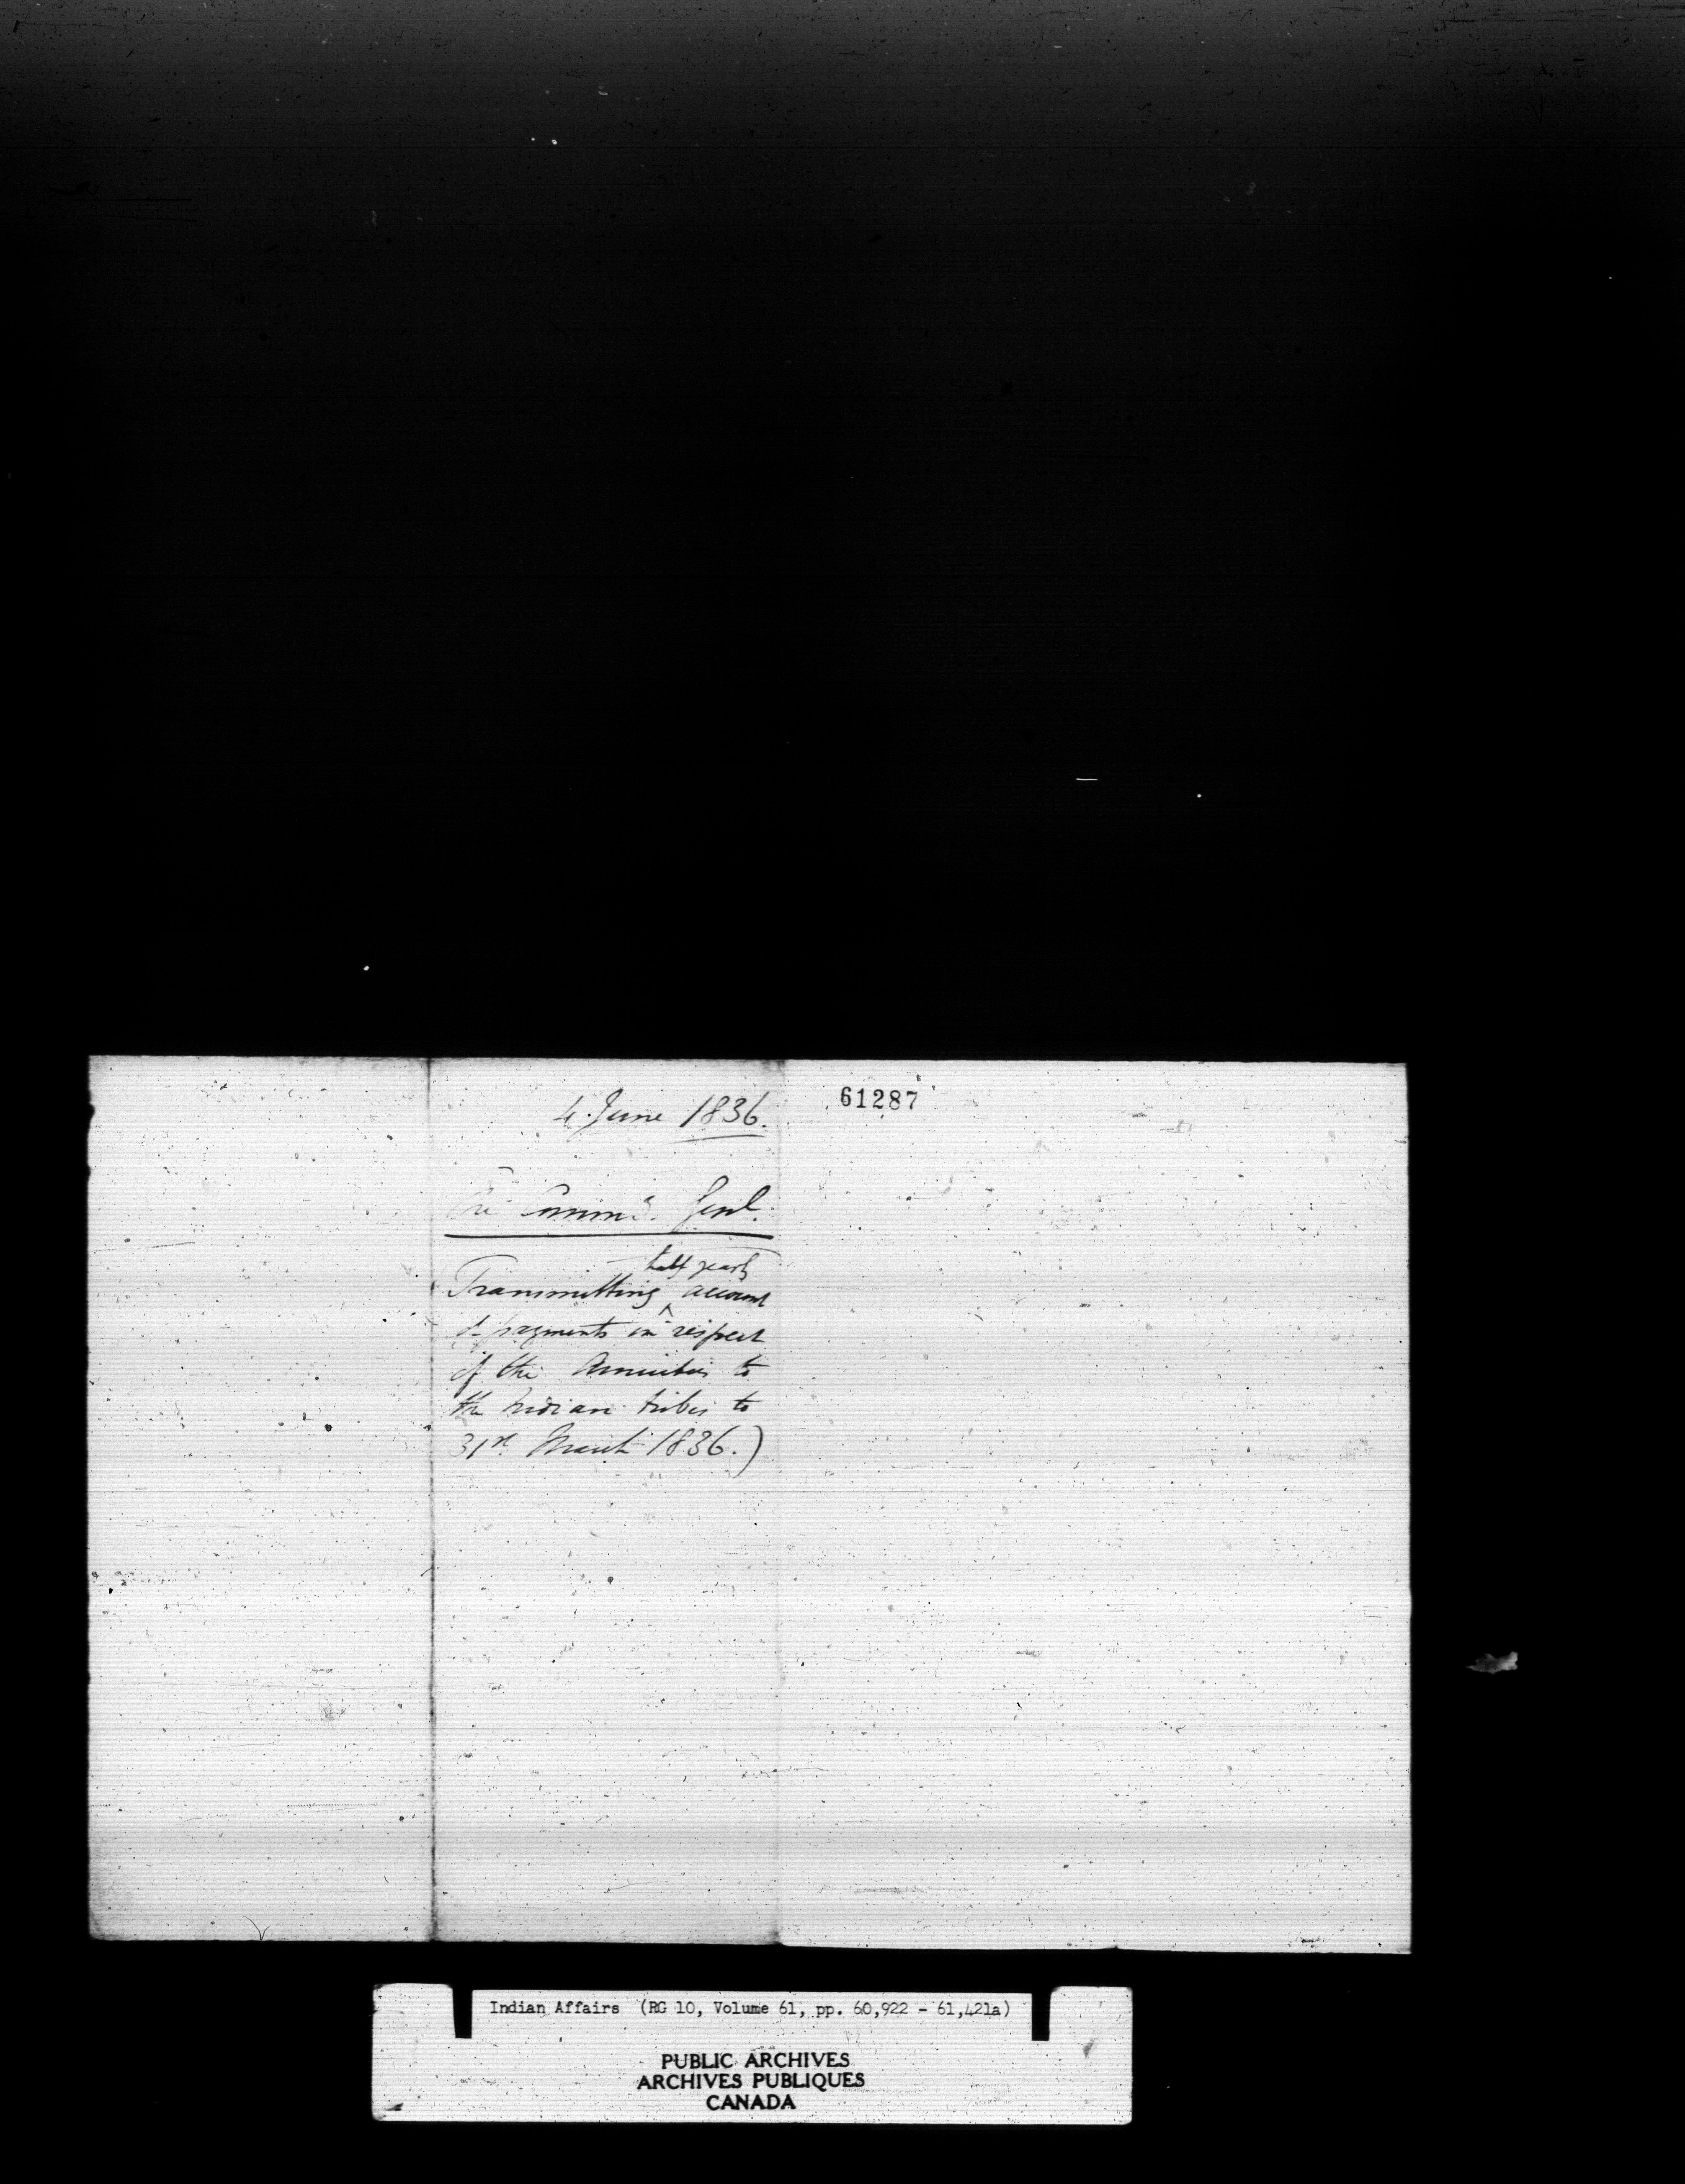 61287
4 June 1836.
Comms. Genl.
half yearly
Transmitting ^ account
of payments in respect
of the Annuities to
the Indian tribes to
31st March 1836.)
Indian Affairs (RG 10, Volume 61, pp. 60,922 - 61,421a)
PUBLIC ARCHIVES
ARCHIVES PUBLIQUES
CANADA